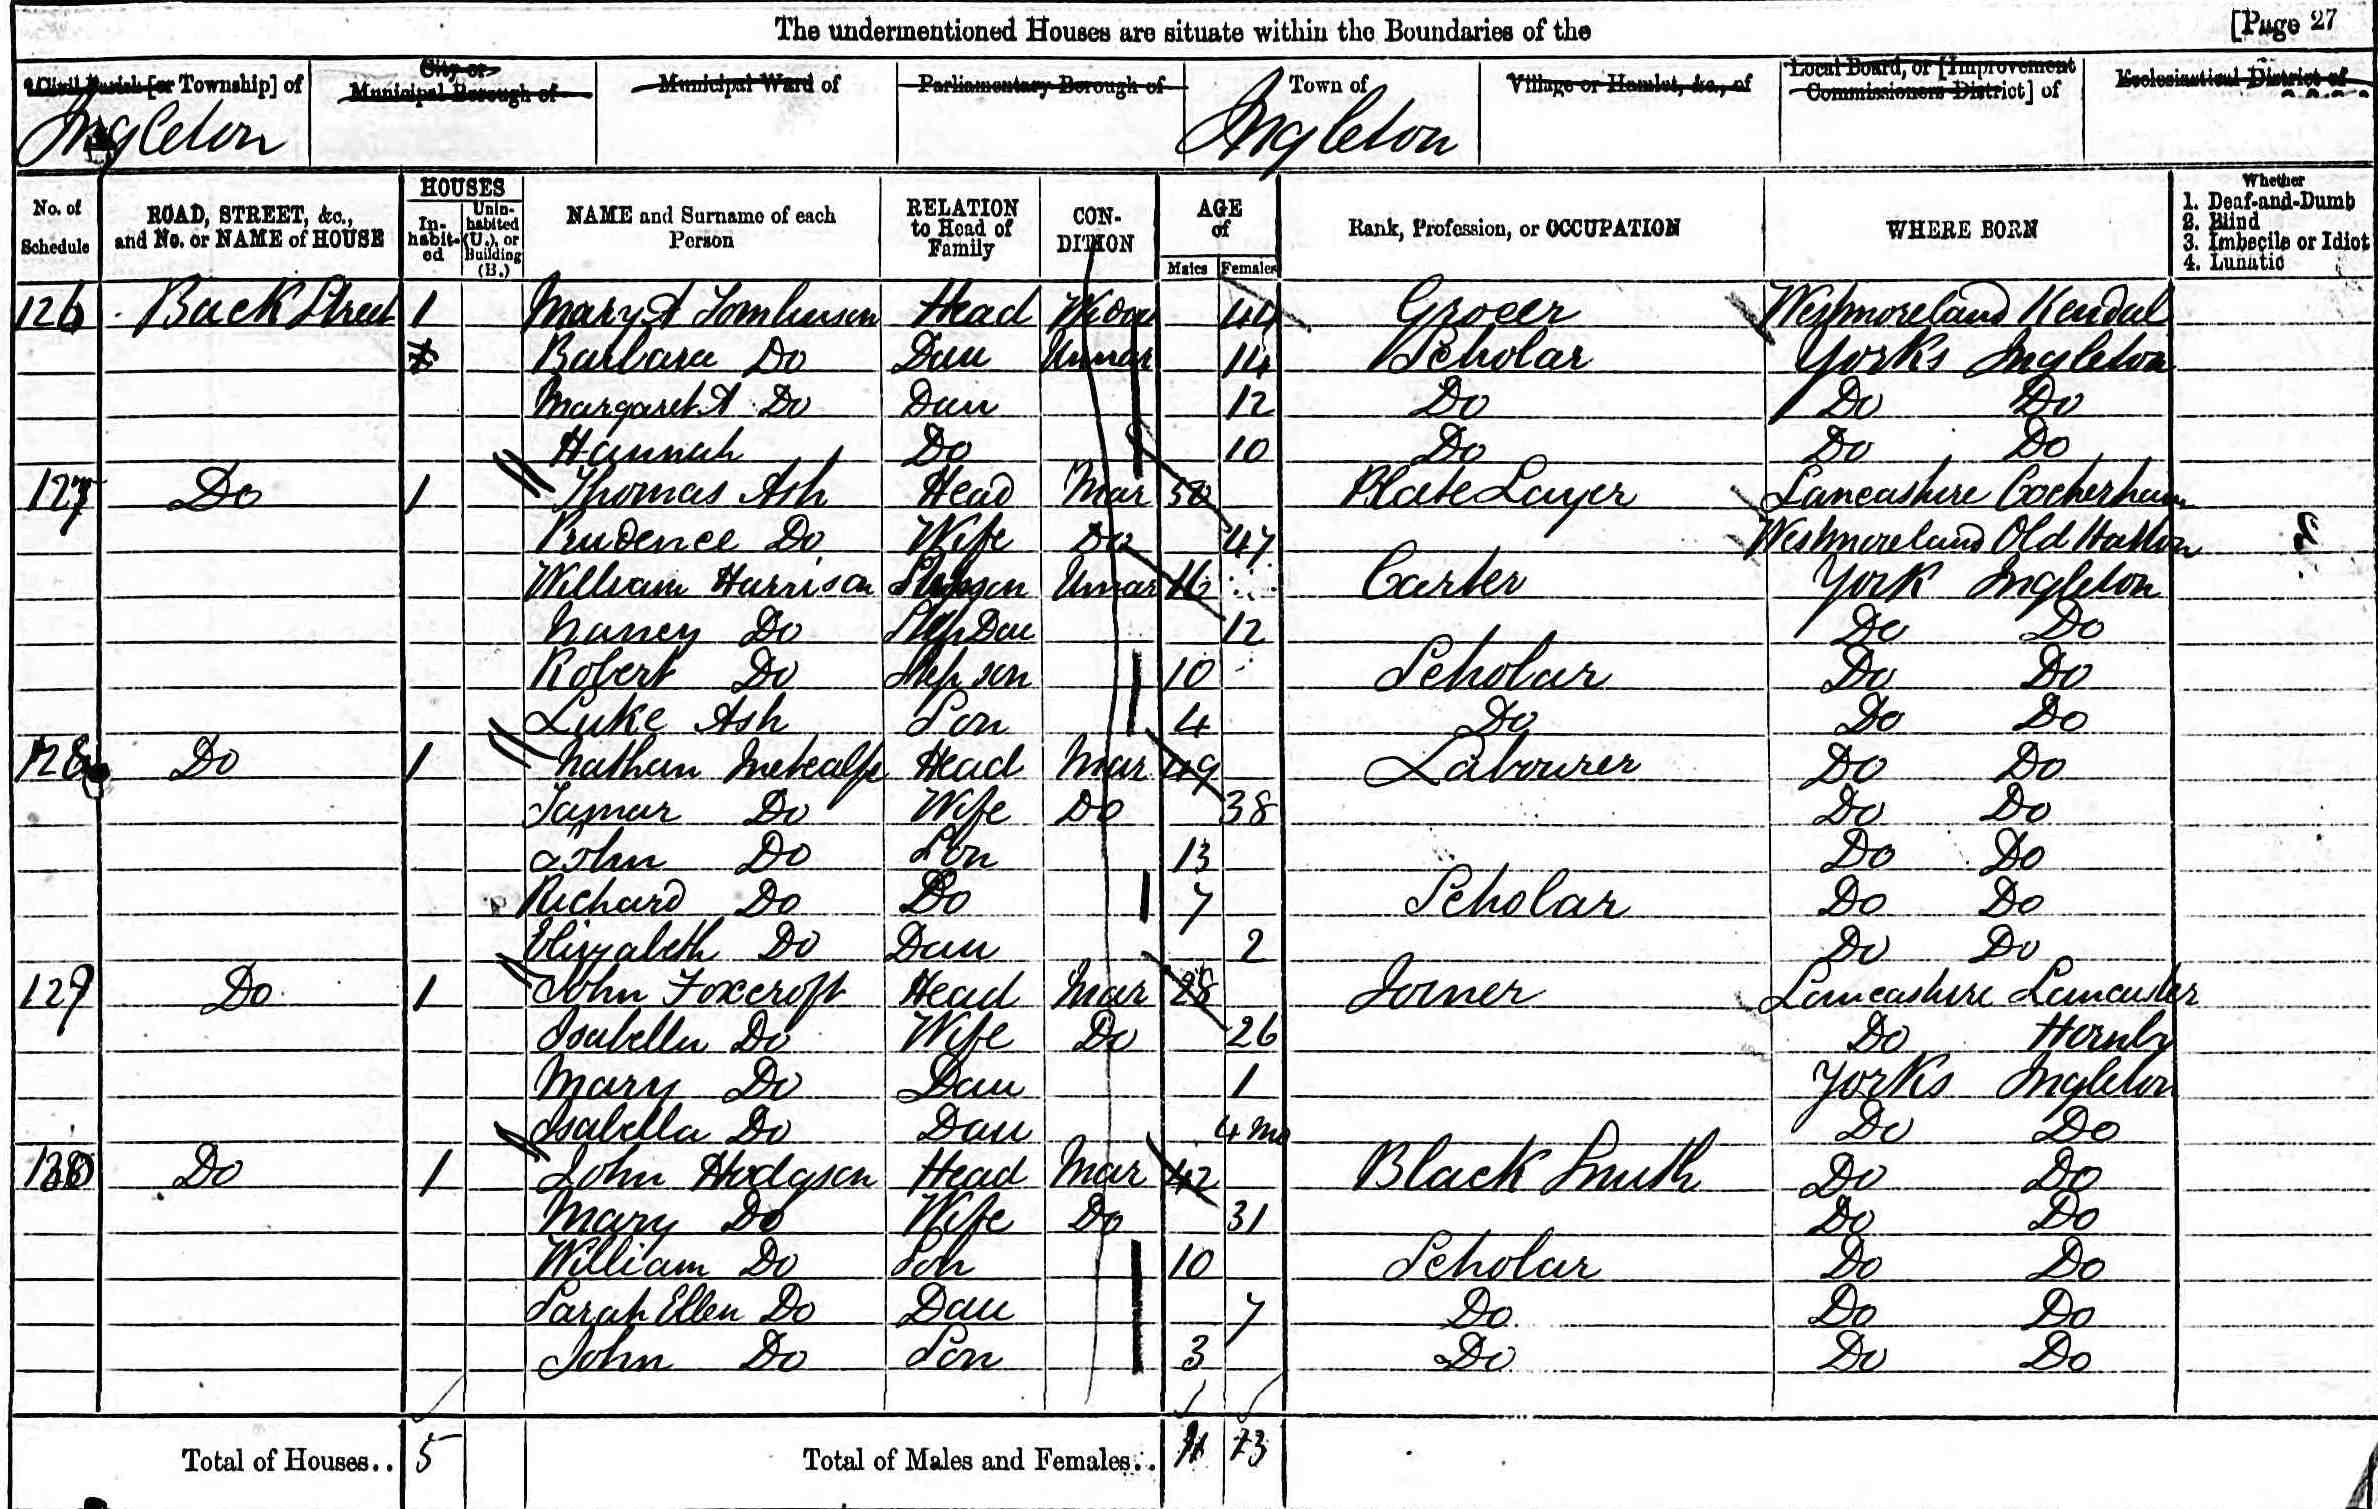 The undermentioned Houses are situate within the Boundaries of the [Page 27
Civil Parish [or Township] of City or Municipal Borough of Municipal Ward of Parliamentary Borough of Town of Village or Hamlet, &c., of Local Board, or [Improvement Commissioners District] of Ecclesiastical District of
Ingleton Ingleton
No. of Schedule ROAD, STREET, &c., and No. or NAME of HOUSE HOUSES In-habit-ed Unin-habited (U.), or Building (B.) NAME and Surname of each Person RELATION to Head of Family CON-DITION AGE of Males Females Rank, Profession, or OCCUPATION WHERE BORN Whether 1. Deaf-and-Dumb 2. Blind 3. Imbecile or Idiot 4. Lunatic
126 Back Street 1 Mary A Tomlinson Head Widow 44 Grocer Westmoreland Kendal
Barbara Do Dau Unmar 14 Scholar Yorks Ingleton
Margaret A Do Dau 12 Do Do Do
Hannah Do 10 Do Do Do
127 Do 1 Thomas Ash Head Mar 50 Plate Layer Lancashire Cockerham
Prudence Do Wife Do 47 Westmoreland Old Hutton
William Harrison Stepson Unmar 16 Carter York Ingleton
Nancy Do Step Dau 12 Do Do
Robert Do Step son 10 Scholar Do Do
Luke Ash Son 4 Do Do Do
128 Do 1 Nathan Metcalfe Head Mar 49 Labourer Do Do
Tamar Do Wife Do 38 Do Do
John Do Son 13 Do Do
Richard Do Do 7 Scholar Do Do
Elizabeth Do Dau 2 Do Do
129 Do 1 John Foxcroft Head Mar 28 Joiner Lancashire Lancaster
Isabella Do Wife Do 26 Do Hornby
Mary Do Dau 1 Yorks Ingleton
Isabella Do Dau 4 mo Do Do
130 Do 1 John Hodgson Head Mar 42 Black Smith Do Do
Mary Do Wife Do 31 Do Do
William Do Son 10 Scholar Do Do
Sarah Ellen Do Dau 7 Do Do Do
John Do Son 3 Do Do Do
Total of Houses.. 5 Total of Males and Females.. 11 13